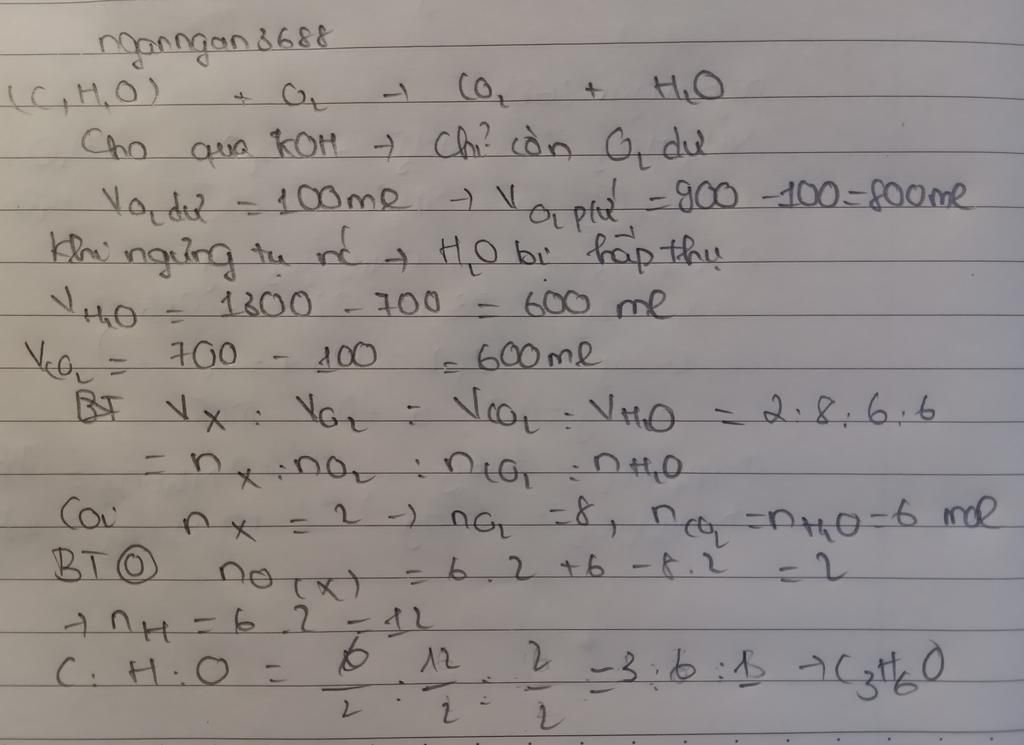 nganngan3688
(C,H,O) + O₂ → CO₂ + H₂O
Cho qua KOH → Chỉ còn O₂ dư
V O₂ dư = 100 ml → V O₂ pứ = 900 - 100 = 800 ml
Khi ngưng tụ nc → H₂O bị hấp thụ
V H₂O = 1300 - 700 = 600 ml
V CO₂ = 700 - 100 = 600 ml
BT V X : V O₂ : V CO₂ : V H₂O = 2 : 8 : 6 : 6
= n X : n O₂ : n CO₂ : n H₂O
Coi n X = 2 → n O₂ = 8, n CO₂ = n H₂O = 6 mol
BT Ⓞ n O (X) = 6.2 + 6 - 8.2 = 2
→ n H = 6.2 = 12
C : H : O = 6/2 : 12/2 : 2/2 = 3 : 6 : 1 → C₃H₆O